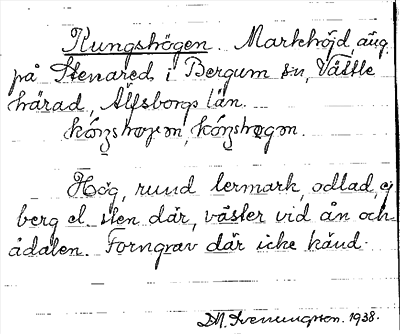 Kungshögen. Markhöjd, äng
på Stenared i Bergum sn, Vättle
härad, Älfsborgs län.
Hög, rund lermark, odlad, ej
berg el. sten där, väster vid ån och
ådalen. Forngrav där icke känd.
D.M. Svenungson. 1938.